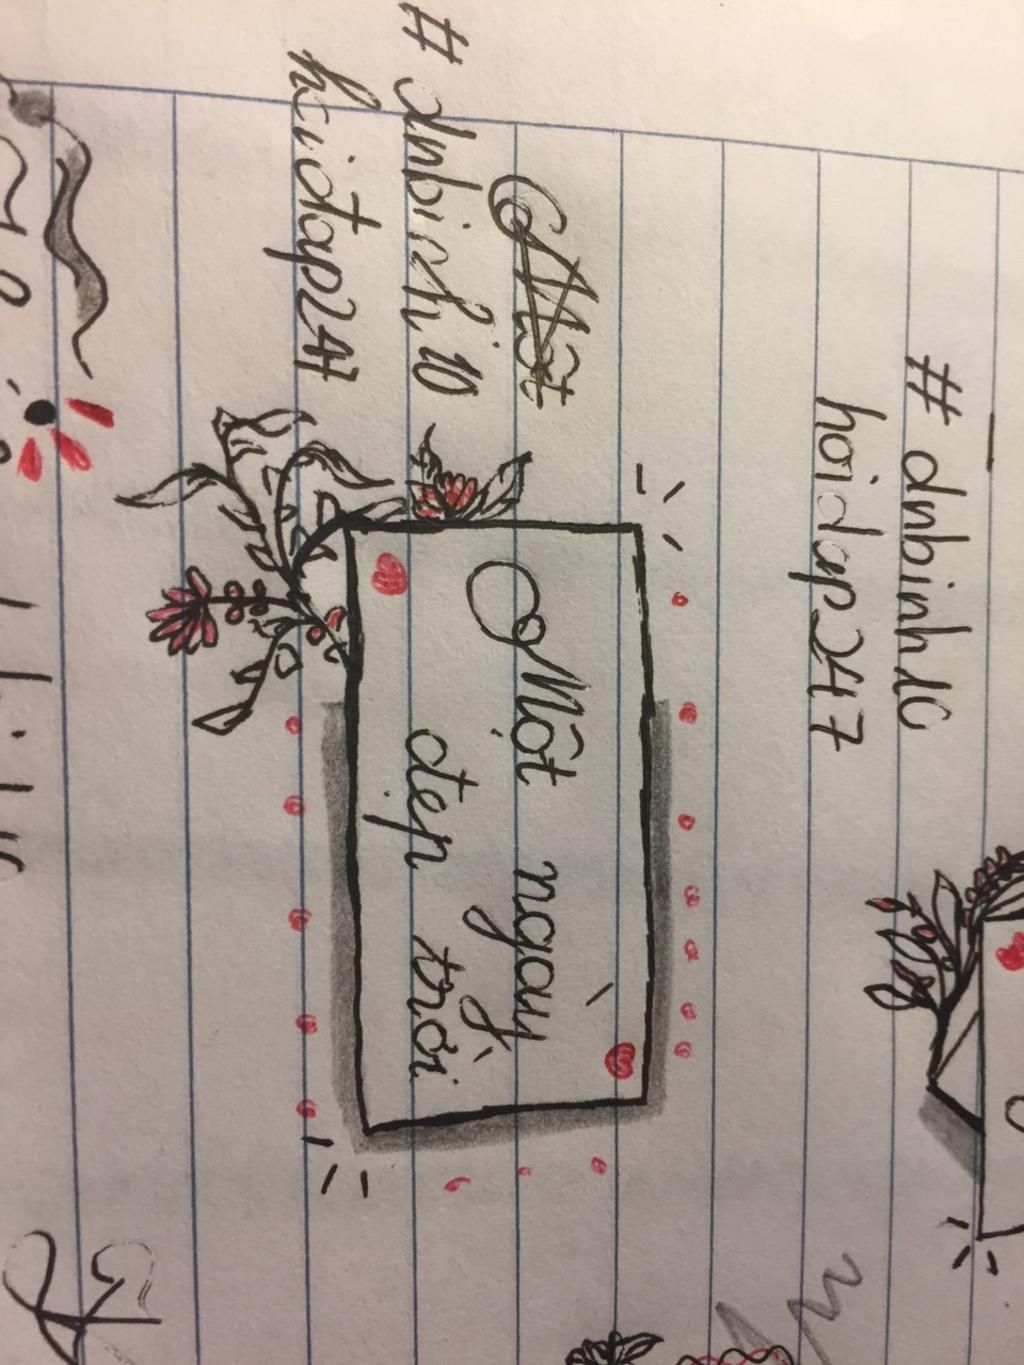 # dnbinh10
hoidap247
# dnbinh10
hoidap247
Một
Một ngày
đẹp trời